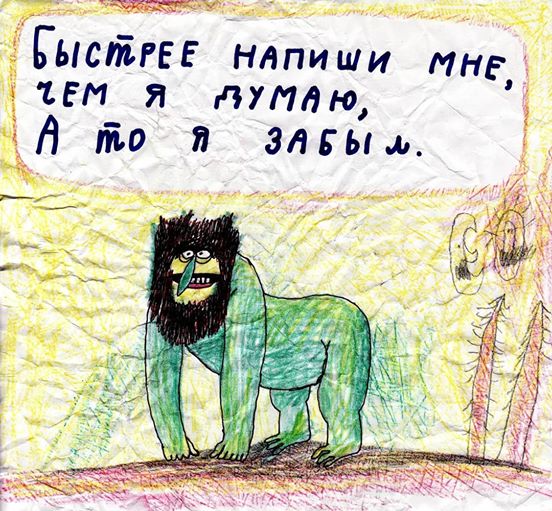 Быстрее напиши мне,
чем я думаю,
А то я забыл.